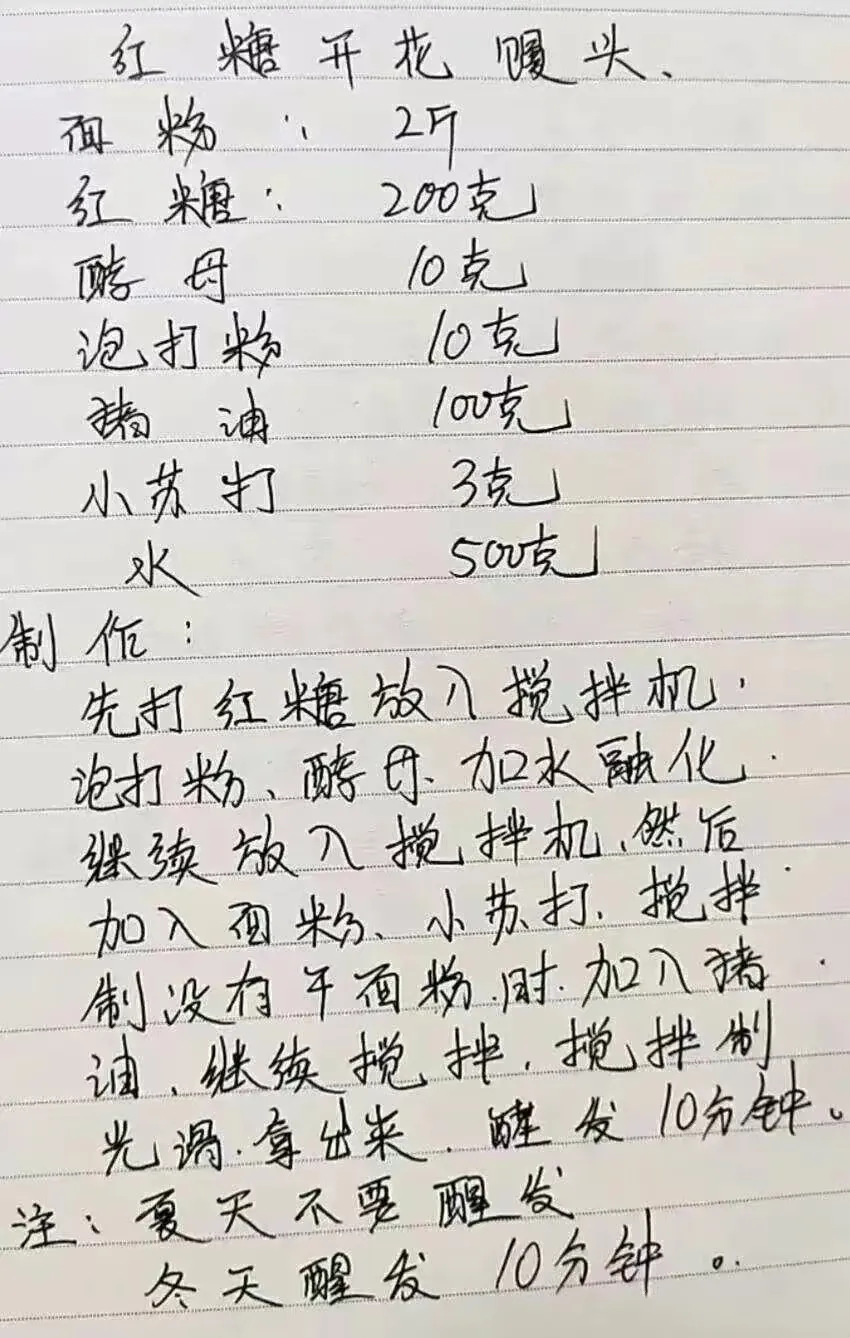 红糖开花馒头、
面粉: 2斤
红糖: 200克
酵母 10克
泡打粉 10克
猪油 100克
小苏打 3克
水 500克
制作:
先打红糖放入搅拌机.
泡打粉、酵母、加水融化.
继续放入搅拌机、然后
加入面粉、小苏打、搅拌
制没有干面粉.时.加入猪
油、继续搅拌,搅拌制
光滑.拿出来.醒发10分钟。
注:夏天不要醒发
冬天醒发10分钟。